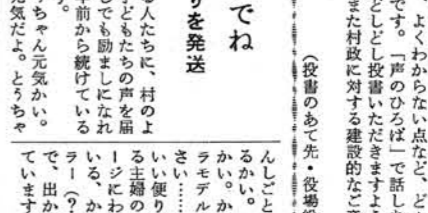 、よくわからない点など、ど
です。「声のひろば」で話し
どしどし投書いただきますよ
また村政に対する建設的なご
（投書のあて先・役場
でね
りを発送
る人たちに、村のよ
子どもたちの声を届
しでも励ましになれ
年前から続けている
す。
うちゃん元気かい。
元気だよ。とうちゃ
んしごと
るかい。
かい。か
ラモデル
さい……
いい便り
る主婦の
ージにわ
いる、か
ラー（？
で、出か
ています